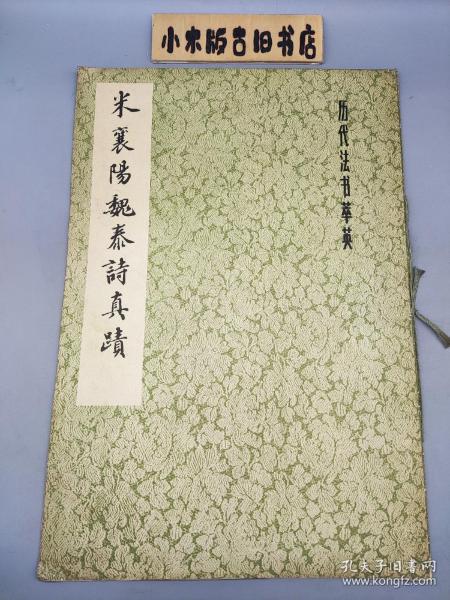 小木版古旧书店
历代法书萃英
米襄陽魏泰詩真蹟
孔夫子旧书网
www.kongfz.com